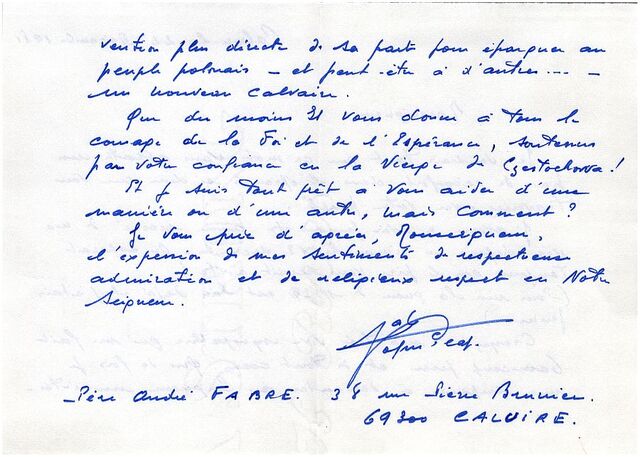 vention plus directe de sa part pour épargner au
peuple polonais – et peut-être à d'autres... –
un nouveau calvaire.
Que du moins Il vous donne à tous le
courage de la Foi et de l'Espérance, soutenus
par votre confiance en la Vierge de Częstochowa !
Et je suis tout prêt à vous aider d'une
manière ou d'une autre, mais comment ?
Je vous prie d'agréer, Monseigneur,
l'expression de mes sentiments de respectueuse
admiration et de religieux respect en Notre
Seigneur.
Père André FABRE. 38 rue Pierre Brunier.
69300 CALUIRE.